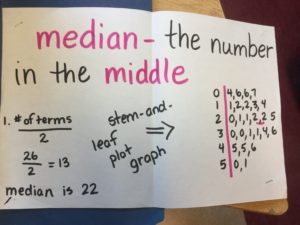 median - the number
in the middle
1. # of terms
2
26
2
= 13
median is 22
stem-and-
leaf
plot
graph
⇒
0 | 4, 6, 6, 7
1 | 1, 2, 2, 3, 4
2 | 0, 1, 1, 2, 2 5
3 | 0, 0, 1, 1, 4, 6
4 | 5, 5, 6
5 | 0, 1